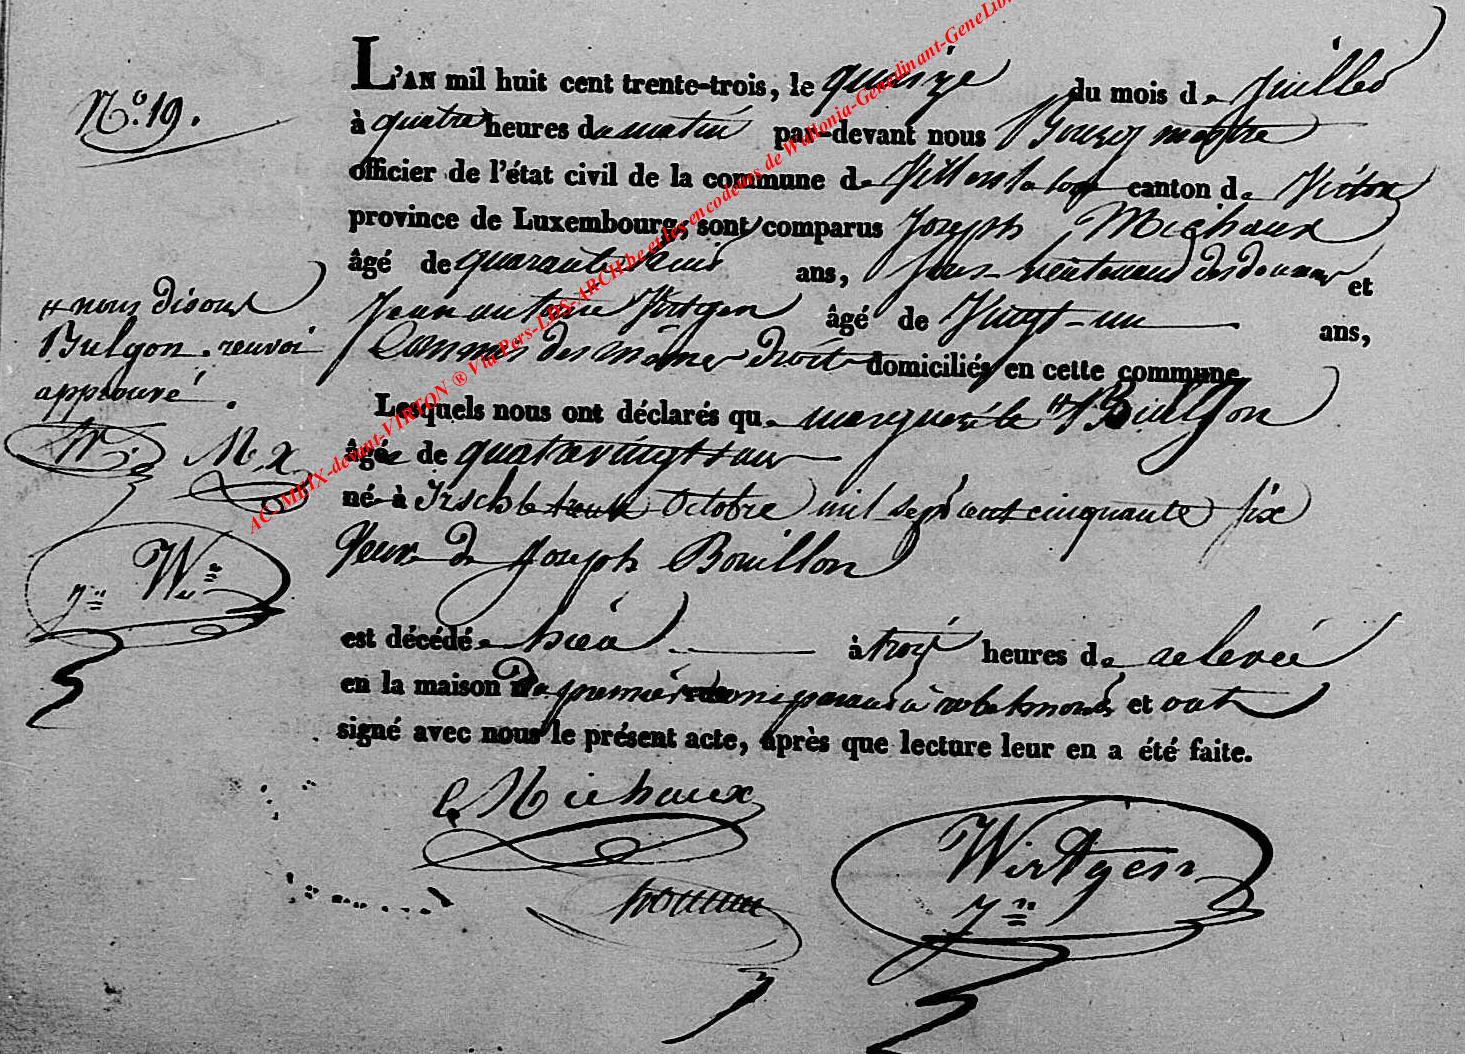 N.o 19.
L'AN mil huit cent trente-trois, le quinze du mois de Juillet
à quatre heures du matin par-devant nous
officier de l'état civil de la commune de Villers la loue canton de Virton
province de Luxembourg, sont comparus Joseph Michaux
âgé de quarante huit ans, sous-lieutenant des douanes et
Jean antoine Wirtgen âgé de Vingt-un ans,
Commis des mêmes droits domiciliés en cette commune
Lesquels nous ont déclarés que marguerite # Bulgon
âgée de quatre vingt
né à Irsch le trente octobre mil sept cent cinquante six
Veuve de Joseph Bouillon
est décédée hier à trois heures de relevée
en la maison et ont
signé avec nous le présent acte, après que lecture leur en a été faite.
# nous disons
Bulgon. renvoi
approuvé.
Mx
Michaux
Wirtgen
AC-MEIX-devant-VIRTON ® Via Pers-LDS-ARCH.be et les encodeurs de Wallonia-Genedinant-GeneLib